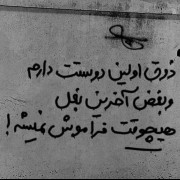 ذوق اولین دوستت دارم
و بغض آخرین بغل
هیچوقت فراموش نمیشه!